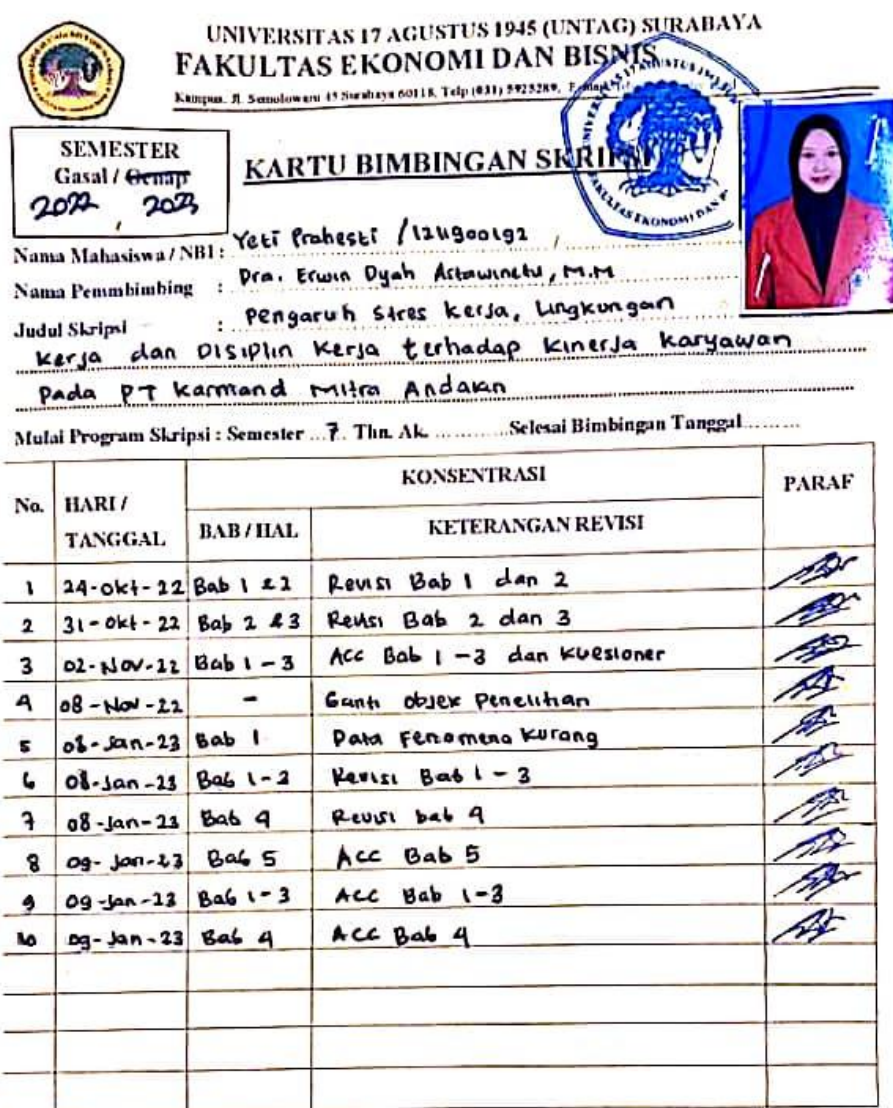 UNIVERSITAS 17 AGUSTUS 1945 (UNTAG) SURABAYA
FAKULTAS EKONOMI DAN BISNIS
Kampus. Jl. Semolowaru 45 Surabaya 60118, Telp (031) 5925289,
SEMESTER
Gasal / Genap
2022, 2023
KARTU BIMBINGAN SKRIPSI
UNIVERSITAS 17 AGUSTUS 1945
FAKULTAS EKONOMI DAN
Nama Mahasiswa / NBI : Yeti Prahesti / 1211900192
Nama Pemmbimbing : Dra. Erwin Dyah Astawinetu, M.M
Judul Skripsi : Pengaruh Stres Kerja, Lingkungan
Kerja dan Disiplin Kerja terhadap Kinerja Karyawan
Pada PT Karmand Mitra Andalan
Mulai Program Skripsi : Semester ...7.. Thn. Ak. ............Selesai Bimbingan Tanggal.........
No. HARI / TANGGAL KONSENTRASI PARAF
BAB / HAL KETERANGAN REVISI
1 24-Okt-22 Bab 1 & 2 Revisi Bab 1 dan 2
2 31-Okt-22 Bab 2 & 3 Revisi Bab 2 dan 3
3 02-Nov-22 Bab 1-3 Acc Bab 1-3 dan Kuesioner
4 08-Nov-22 - Ganti objek Penelitian
5 08-Jan-23 Bab 1 Data Fenomena Kurang
6 08-Jan-23 Bab 1-3 Revisi Bab 1-3
7 08-Jan-23 Bab 4 Revisi bab 4
8 09-Jan-23 Bab 5 Acc Bab 5
9 09-Jan-23 Bab 1-3 Acc Bab 1-3
10 09-Jan-23 Bab 4 Acc Bab 4